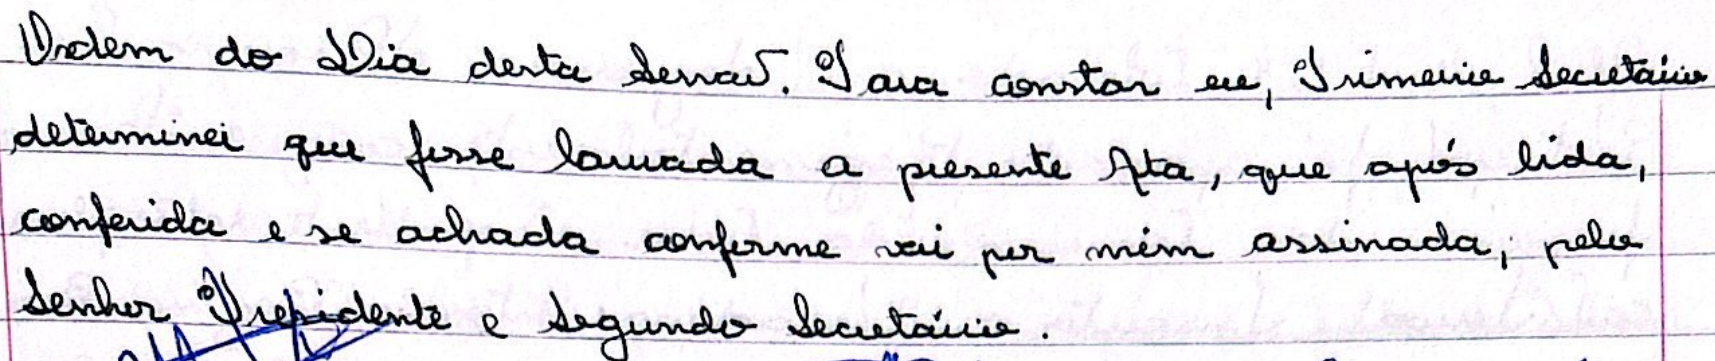 Ordem do Dia desta Sessão. Para constar eu, Primeiro Secretário
determinei que fosse lavrada a presente Ata, que após lida,
conferida e se achada conforme vai por mim assinada, pelo
Senhor Presidente e Segundo Secretário.